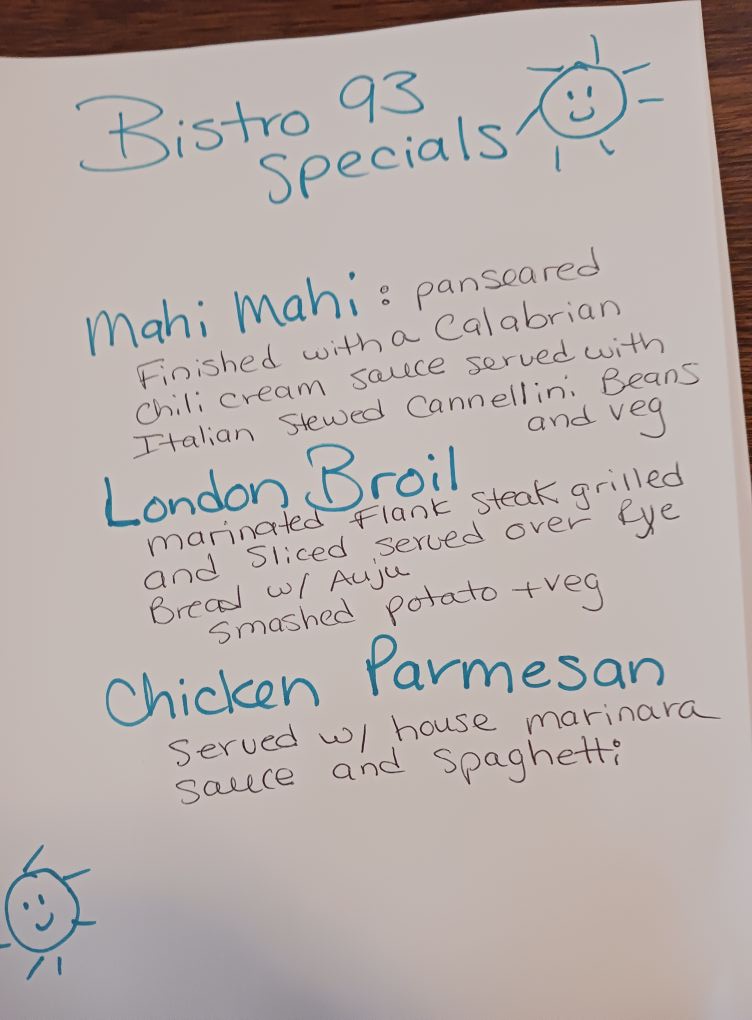 Bistro 93
Specials
Mahi Mahi: panseared
Finished with a Calabrian
Chili cream sauce served with
Italian Stewed Cannellini Beans
and veg
London Broil
marinated Flank Steak grilled
and Sliced served over Rye
Bread w/ Auju
Smashed potato + veg
Chicken Parmesan
Served w/ house marinara
sauce and Spaghetti